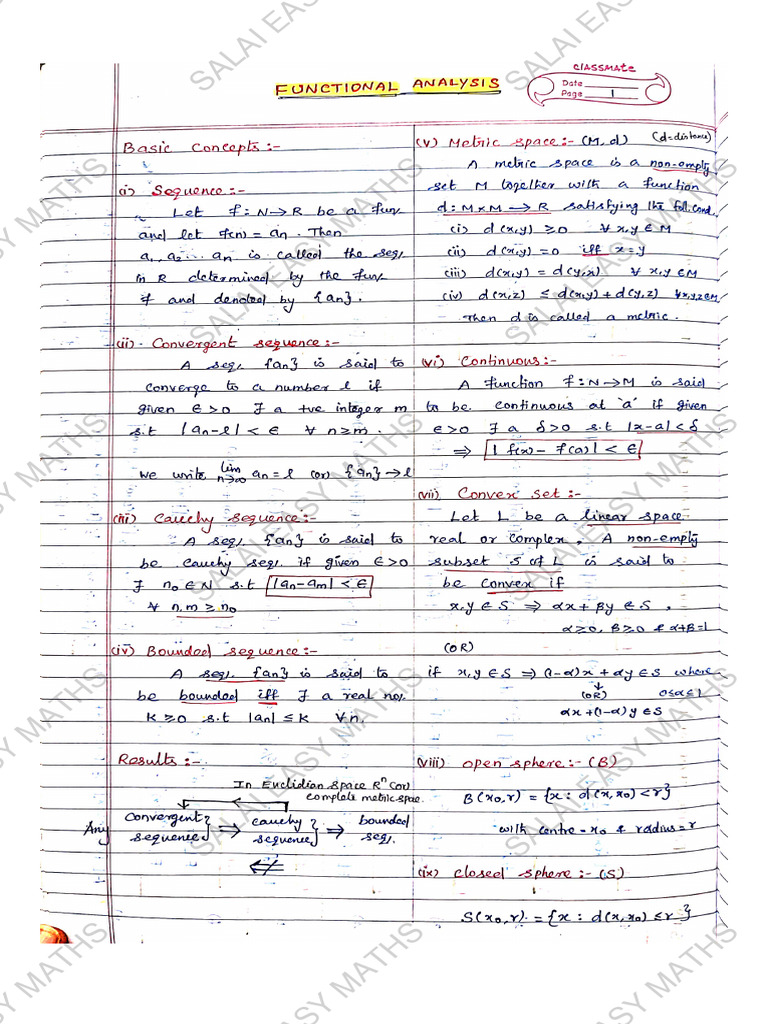 FUNCTIONAL ANALYSIS
CLASSMATE
Date
Page 1
Basic Concepts :-
(i) Sequence :-
Let f : N → R be a fun.
and let f(n) = an. Then
a1, a2 ... an is called the seq.
in R determined by the fun.
f and denoted by {an}.
(ii) Convergent sequence :-
A seq. {an} is said to
converge to a number l if
given ϵ>0 ∃ a +ve integer m
s.t |an-l| < ϵ ∀ n≥m.
We write lim n→∞ an = l (or) {an} → l
(iii) Cauchy sequence :-
A seq. {an} is said to
be cauchy seq. if given ϵ>0
∃ n0 ∈ N s.t |an-am| < ϵ
∀ n,m ≥ n0
(iv) Bounded sequence :-
A seq. {an} is said to
be bounded iff ∃ a real no.
K ≥0 s.t |an| ≤ K ∀n.
Results :-
In Euclidian space R^n (or)
complete metric space.
Any convergent sequence} ⇒ cauchy sequence} ⇒ bounded seq.
⇍
(v) Metric space :- (M, d) (d=distance)
A metric space is a non-empty
set M together with a function
d : M×M → R satisfying the foll. cond.
(i) d(x,y) ≥0 ∀ x,y ∈ M
(ii) d(x,y) =0 iff x=y
(iii) d(x,y) = d(y,x) ∀ x,y ∈ M
(iv) d(x,z) ≤ d(x,y)+d(y,z) ∀x,y,z ∈ M
Then d is called a metric.
(vi) Continuous :-
A function f : N → M is said
to be continuous at 'a' if given
ϵ>0 ∃ a δ>0 s.t |x-a| < δ
⇒ |f(x) - f(a)| < ϵ
(vii) Convex set :-
Let L be a linear space
real or complex. A non-empty
subset S of L is said to
be convex if
x,y ∈ S ⇒ αx + βy ∈ S,
α≥0, β≥0 & α+β=1
(OR)
if x,y ∈ S ⇒ (1-α)x + αy ∈ S where
(OR) 0≤α≤1
αx+(1-α)y ∈ S
(viii) open sphere :- (B)
B(x0,r) = {x : d(x,x0) < r}
with centre - x0 & radius = r
(ix) closed sphere :- (S)
S(x0,r) = {x : d(x,x0) ≤ r}
SALAI EASY MATHS